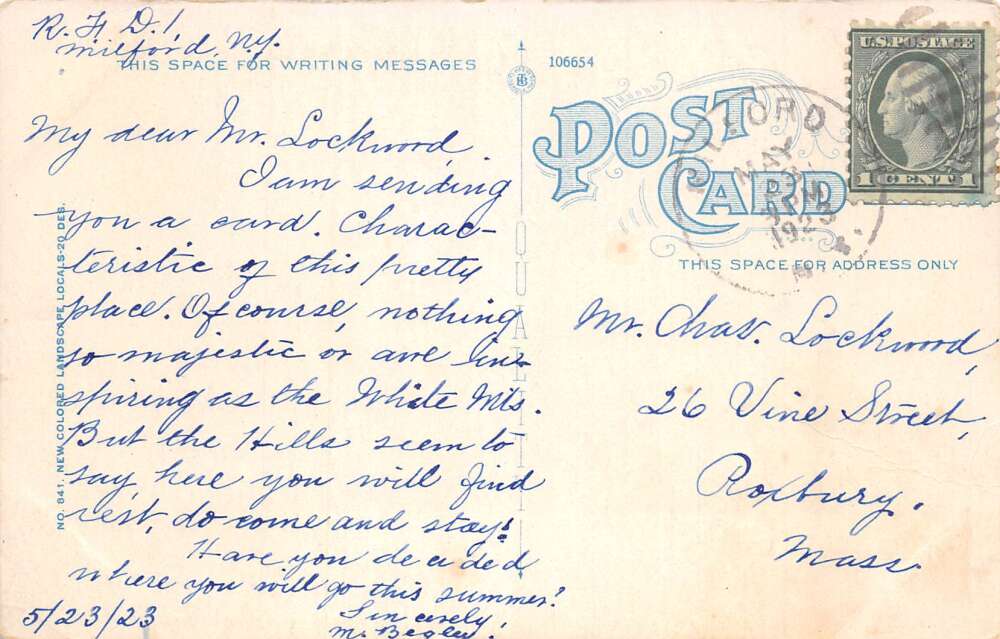 R.F.D.1,
Milford, N.Y.
THIS SPACE FOR WRITING MESSAGES
My dear Mr. Lockwood,
I am sending
you a card. Charac-
teristic of this pretty
place. Of course, nothing
so majestic or awe in-
spiring as the White Mts.
But the Hills seem to
say, here you will find
rest, do come and stay!
Have you decided
where you will go this summer?
Sincerely,
M.
5/23/23
NO. 841. NEW COLORED LANDSCAPE LOCALS-20 DES.
106654
POST
CARD
QUALI
FORD
MAY
PM
1923
U.S. POSTAGE
1 CENT 1
THIS SPACE FOR ADDRESS ONLY
Mr. Chas. Lockwood,
26 Vine Street,
Roxbury,
Mass.